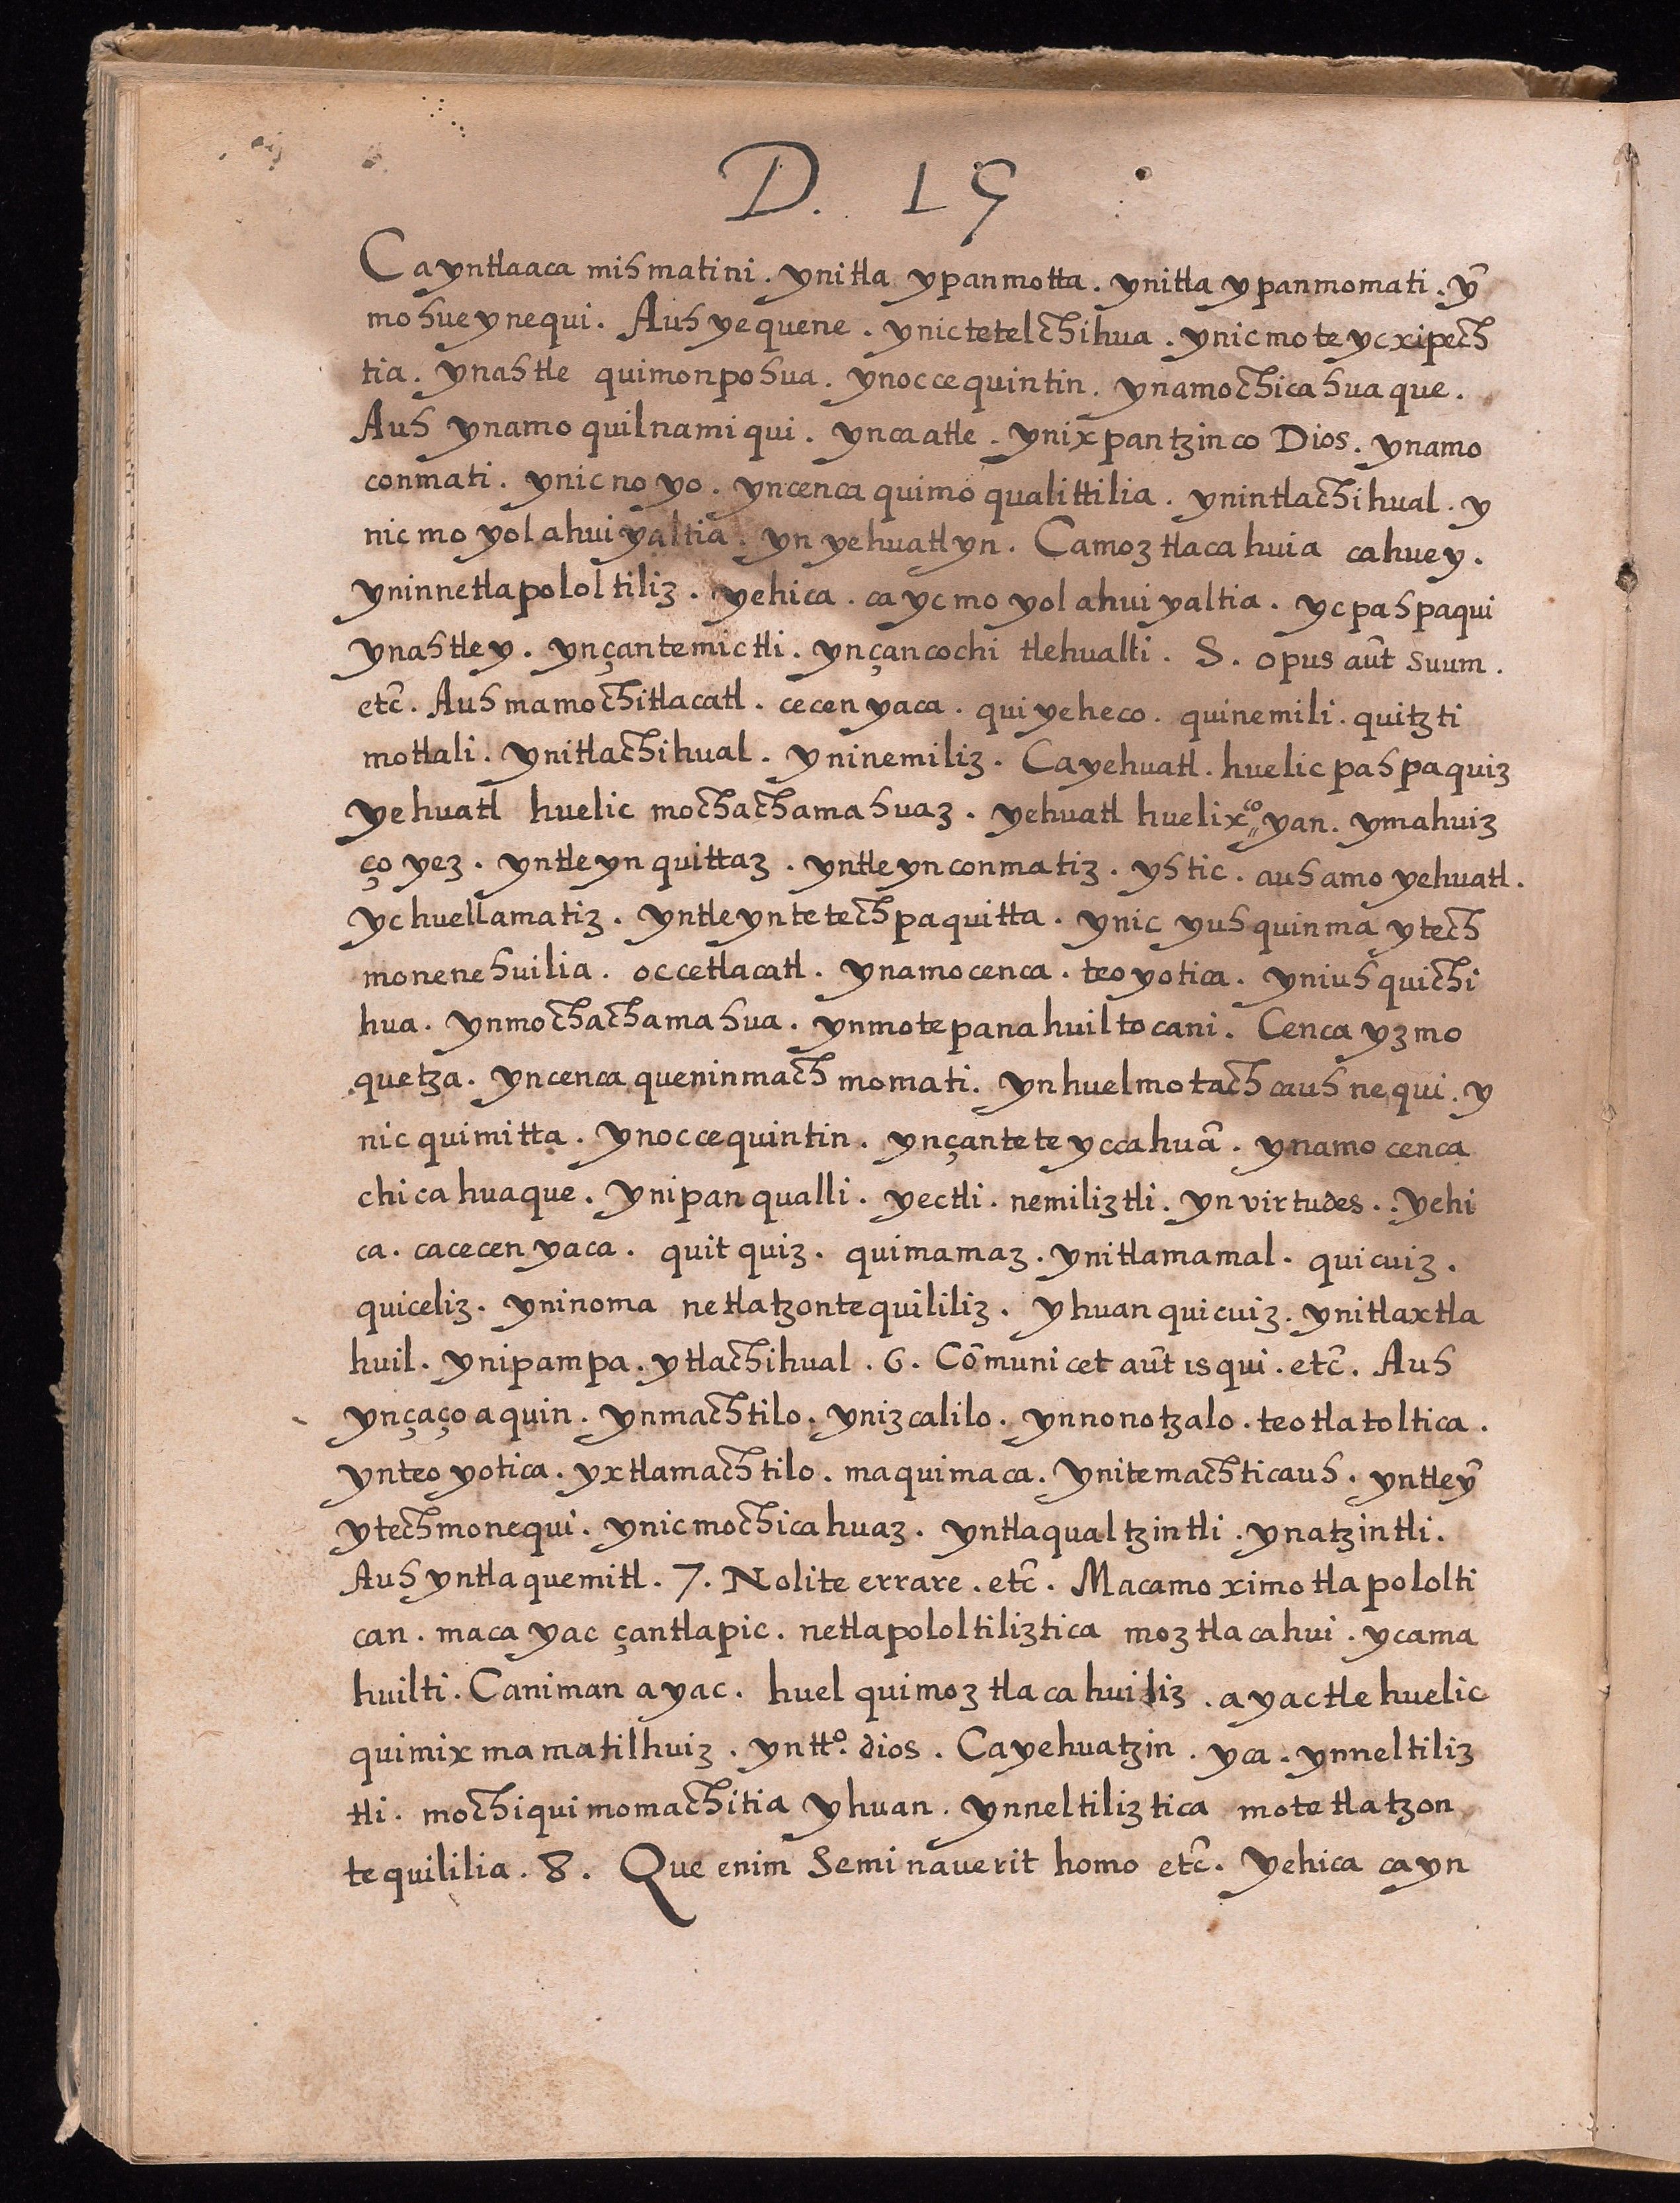 D. 15
Cayntlaaca mihmatini. ynitla ypanmotta. ynitla ypanmomati. yn̄
mohueynequi. Auh yequene. ynictetelchihua. ynicmoteycxipech
tia. ynahtle quimonpohua. ynoccequintin. ynamochicahuaque.
Auh ynamo quilnamiqui. yncaatle. ynixpantzinco Dios. ynamo
conmati. ynicnoyo. yncenca quimoqualittilia. ynintlachihual. y
nicmoyolahuiyaltia. yn yehuatlyn. Camoztlacahuia cahuey.
yninnetlapololtiliz. yehica. ca ycmoyolahuiyaltia. ycpahpaqui
ynahtley. ynçantemictli. ynçancochitlehualli. S. opus aūt suum.
etc̄. Auh mamochitlacatl. cecenyaca. quiyeheco. quinemili. quitzti
motlali. ynitlachihual. yninemiliz. Cayehuatl. huelic pahpaquiz
yehuatl huelic mochachamahuaz. yehuatl huelixcoyan. ymahuiz
ço yez. yntleyn quittaz. yntleynconmatiz. yhtic. auh amo yehuatl.
yc huellamatiz. yntleyntetechpaquitta. ynic yuhquinma ytech
monenehuilia. occetlacatl. ynamocenca. teoyotica. yniuhquichi
hua. ynmochachamahua. ynmotepanahuiltocani. Cenca yzmo
quetza. yncenca queninmach momati. ynhuelmotachcauhnequi. y
nic quimitta. ynoccequintin. ynçanteteyccahuā. ynamo cenca
chicahuaque. ynipanqualli. yectli. nemiliztli. yn virtudes. yehi
ca. cacecenyaca. quitquiz. quimamaz. ynitlamamal. quicuiz.
quiceliz. yninoma netlatzontequililiz. yhuan quicuiz. ynitlaxtla
huil. ynipampa. ytlachihual. 6. Cōmunicet aūt is qui. etc̄. Auh
ynçaçoaquin. ynmachtilo. ynizcalilo. ynnonotzalo. teotlatoltica.
ynteoyotica. yxtlamachtilo. maquimaca. ynitemachticauh. yntleȳ
ytechmonequi. ynicmochicahuaz. yntlaqualtzintli. ynatzintli.
Auh yntlaquemitl. 7. Nolite errare. etc̄. Macamo ximotlapololti
can. maca yac çantlapic. netlapololtiliztica moztlacahui. ycama
huilti. Caniman ayac. huel quimoztlacahuiliz. ayactle huelic
quimixmamatilhuiz. yntto. dios. Cayehuatzin. yca. ynneltiliz
tli. mochiquimomachitia yhuan. ynneltiliztica motetlatzon
tequililia. 8. Que enim Seminauerit homo etc̄. Yehica cayn